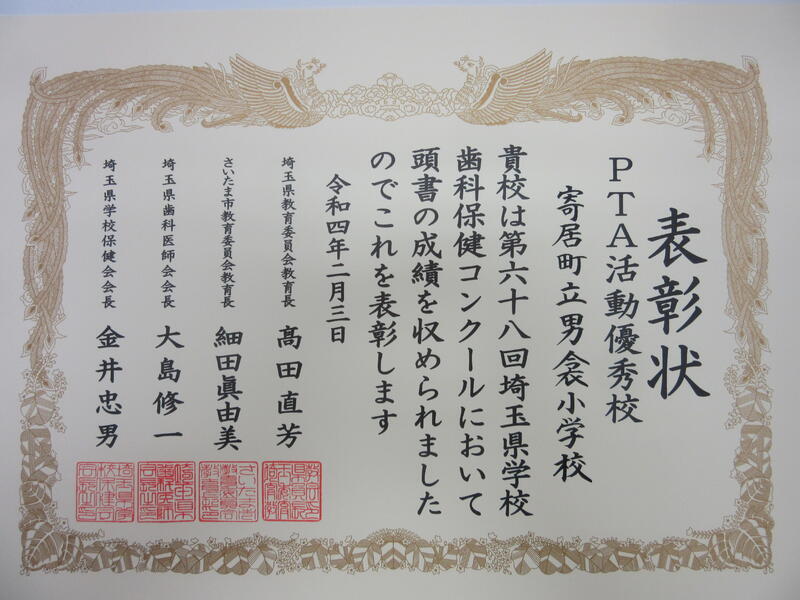 表彰状
PTA活動優秀校
寄居町立男衾小学校
貴校は第六十八回埼玉県学校
歯科保健コンクールにおいて
頭書の成績を収められました
のでこれを表彰します
令和四年二月三日
埼玉県教育委員会教育長 髙田直芳
さいたま市教育委員会教育長 細田眞由美
埼玉県歯科医師会会長 大島修一
埼玉県学校保健会会長 金井忠男